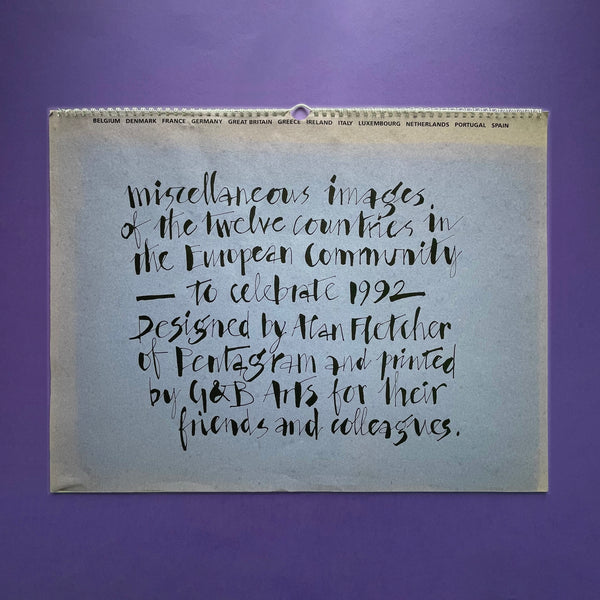 BELGIUM DENMARK FRANCE GERMANY GREAT BRITAIN GREECE IRELAND ITALY LUXEMBOURG NETHERLANDS PORTUGAL SPAIN
miscellaneous images
of the twelve countries in
the European Community
— to celebrate 1992
Designed by Alan Fletcher
of Pentagram and printed
by G&B Arts for their
friends and colleagues.